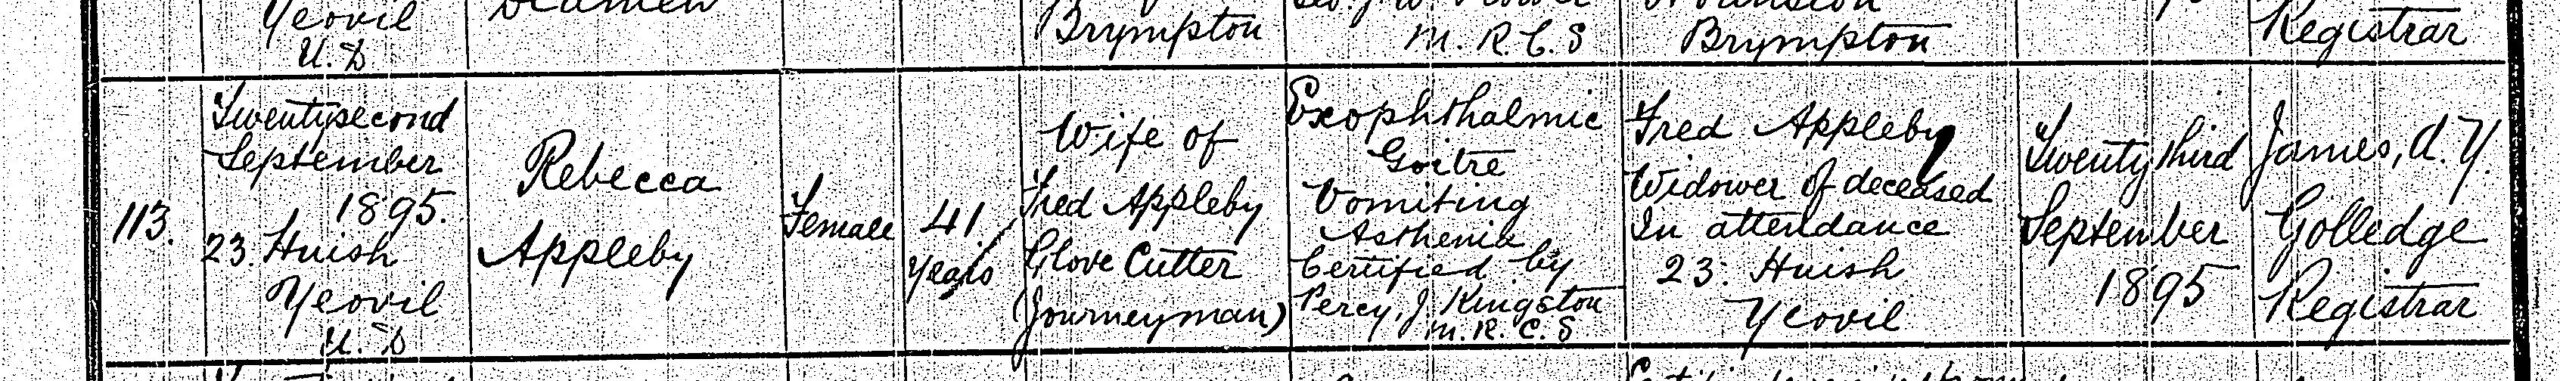 Yeovil
U.D
Brympton
M.R.C.S
Brympton
Registrar
113.
Twenty second
September
1895.
23. Huish
Yeovil
U.D
Rebecca
Appleby
Female
41
years
Wife of
Fred Appleby
Glove Cutter
(Journeyman)
Exophthalmic
Goitre
Vomiting
Asthenia
Certified by
Percy. J. Kingston
M.R.C.S
Fred Appleby
Widower of deceased
In attendance
23. Huish
Yeovil
Twenty third
September
1895
James, A. Y.
Golledge
Registrar